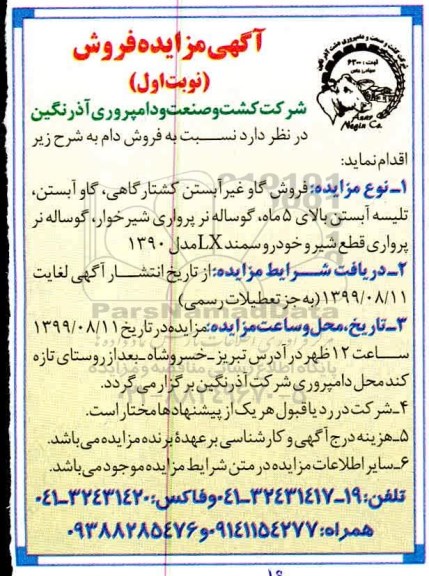 آگهی مزایده فروش
(نوبت اول)
شرکت کشت و صنعت و دامپروری آذرنگین
در نظر دارد نسبت به فروش دام به شرح زیر
اقدام نماید:
۱ـ نوع مزایده: فروش گاو غیر آبستن کشتارگاهی، گاو آبستن،
تلیسه آبستن بالای ۵ ماه، گوساله نر پرواری شیرخوار، گوساله نر
پرواری قطع شیر و خودرو سمند LX مدل ۱۳۹۰
۲ـ دریافت شرایط مزایده: از تاریخ انتشار آگهی لغایت
۱۳۹۹/۰۸/۱۱ (به جز تعطیلات رسمی)
۳ـ تاریخ، محل و ساعت مزایده: مزایده در تاریخ ۱۳۹۹/۰۸/۱۱
ساعت ۱۲ ظهر در آدرس تبریز ـ خسروشاه ـ بعد از روستای تازه
کند محل دامپروری شرکت آذرنگین برگزار می گردد.
۴ـ شرکت در رد یا قبول هر یک از پیشنهادها مختار است.
۵ـ هزینه درج آگهی و کارشناسی بر عهدهٔ برنده مزایده می باشد.
۶ـ سایر اطلاعات مزایده در متن شرایط مزایده موجود می باشد.
تلفن: ۱۹ـ۳۲۴۳۱۴۱۷ـ۰۴۱ و فاکس: ۳۲۴۳۱۴۲۰ـ۰۴۱
همراه: ۰۹۱۴۱۱۵۴۲۷۷ و ۰۹۳۸۸۲۸۵۴۷۶
Azar Negin Co.
ParsNamadData
پایگاه اطلاع رسانی مناقصه و مزایده
۰۲۱-۸۸۳۴۹۶۷۰-۵